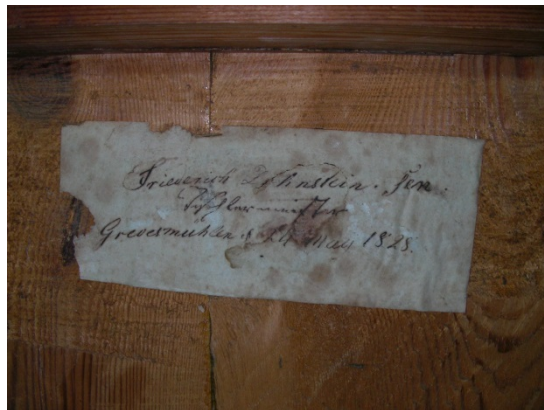 Friederich Lohnstein. Sen.
Tischlermeister
Grevesmuhlen d 24 May 1828.